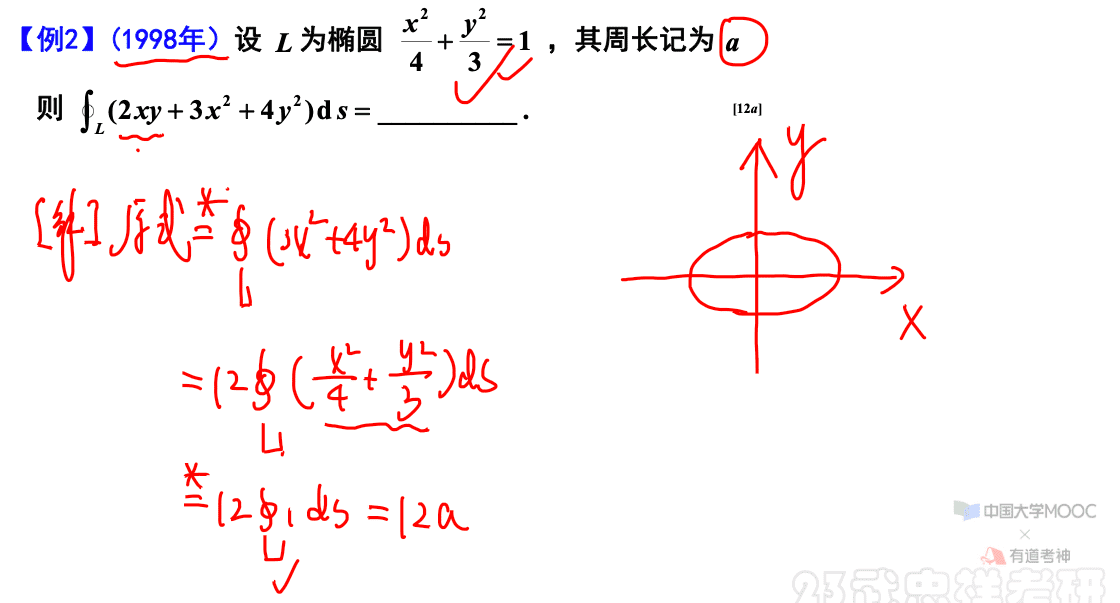 【例2】(1998年) 设 L 为椭圆 x²/4 + y²/3 = 1 ，其周长记为 a
则 ∮_L (2xy + 3x² + 4y²)ds = __________ .
[12a]
y
[解] 原式 =* ∮_L (3x²+4y²)ds
x
= 12∮_L (x²/4 + y²/3)ds
=* 12∮_L 1 ds = 12a
中国大学MOOC
×
有道考神
23武忠祥考研